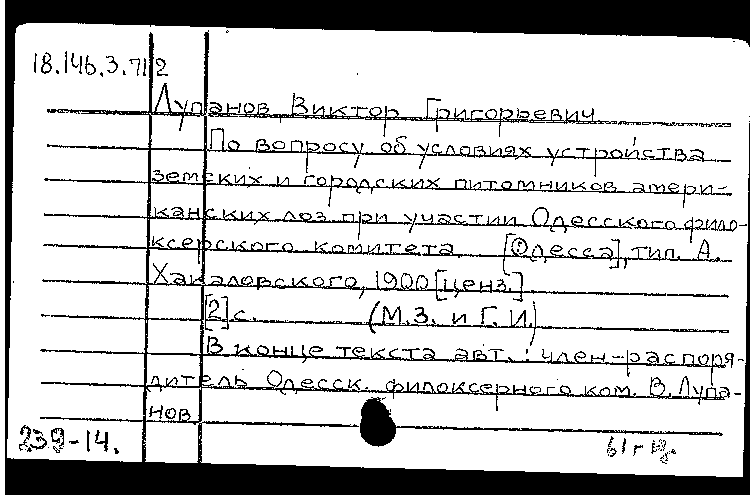 18.146.3.71 2
Лупанов Виктор Григорьевич
По вопросу об условиях устройства
земских и городских питомников амери-
канских лоз при участии Одесского фило-
ксерского комитета. [Одесса], тип. А.
Хакаловского, 1900 [ценз.]
[2] с. (М.З. и Г.И.)
В конце текста авт.: член-распоря-
дитель Одесск. филоксерного ком. В. Лупа-
нов
239-14.
61 г